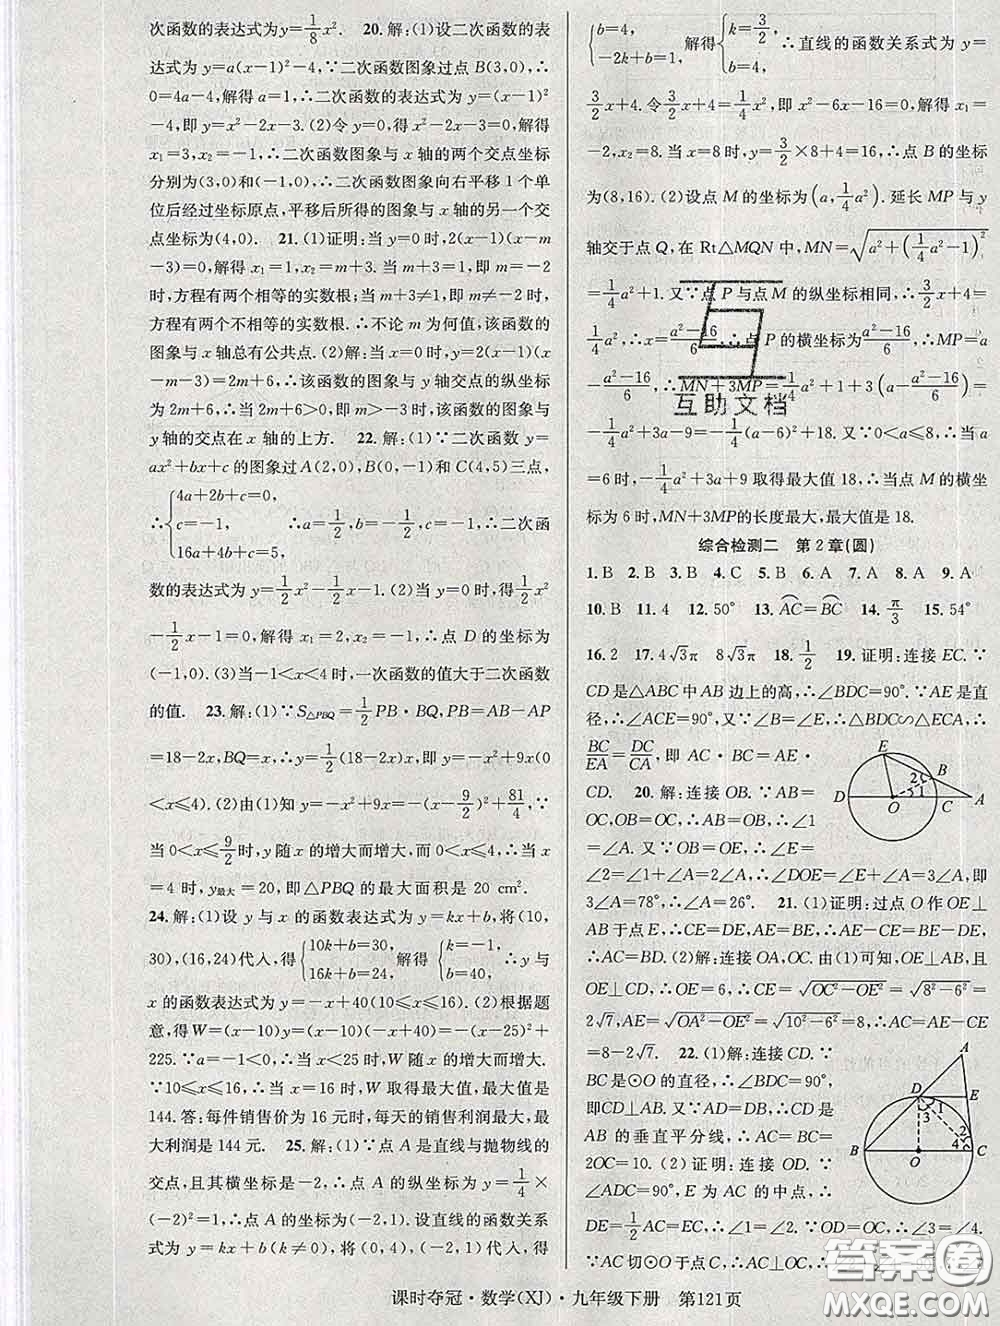 次函数的表达式为y=1/8x². 20.解:(1)设二次函数的表
达式为y=a(x-1)²-4,∵二次函数图象过点B(3,0),∴
0=4a-4,解得a=1,∴二次函数的表达式为y=(x-1)²
-4,即y=x²-2x-3.(2)令y=0,得x²-2x-3=0,解得
x₁=3,x₂=-1,∴二次函数图象与x轴的两个交点坐标
分别为(3,0)和(-1,0),∴二次函数图象向右平移1个单
位后经过坐标原点,平移后所得的图象与x轴的另一个交
点坐标为(4,0). 21.(1)证明:当y=0时,2(x-1)(x-m
-3)=0,解得x₁=1,x₂=m+3.当m+3=1,即m=-2
时,方程有两个相等的实数根;当m+3≠1,即m≠-2时,
方程有两个不相等的实数根.∴不论m为何值,该函数的
图象与x轴总有公共点.(2)解:当x=0时,y=2(x-1)(x
-m-3)=2m+6,∴该函数的图象与y轴交点的纵坐标
为2m+6,∴当2m+6>0,即m>-3时,该函数的图象与
y轴的交点在x轴的上方. 22.解:(1)∵二次函数y=
ax²+bx+c的图象过A(2,0),B(0,-1)和C(4,5)三点,
∴{4a+2b+c=0, c=-1, 16a+4b+c=5, ∴a=1/2,b=-1/2,c=-1,∴二次函
数的表达式为y=1/2x²-1/2x-1.(2)当y=0时,得1/2x²
-1/2x-1=0,解得x₁=2,x₂=-1,∴点D的坐标为
(-1,0).(3)当-1<x<4时,一次函数的值大于二次函数
的值. 23.解:(1)∵S△PBQ=1/2PB·BQ,PB=AB-AP
=18-2x,BQ=x,∴y=1/2(18-2x)x,即y=-x²+9x
(0<x≤4).(2)由(1)知y=-x²+9x=-(x-9/2)²+81/4,∵
当0<x≤9/2时,y随x的增大而增大,而0<x≤4,∴当x
=4时,y最大=20,即△PBQ的最大面积是20 cm².
24.解:(1)设y与x的函数表达式为y=kx+b,将(10,
30),(16,24)代入,得{10k+b=30, 16k+b=24, 解得{k=-1, b=40. ∴y与
x的函数表达式为y=-x+40(10≤x≤16).(2)根据题
意,得W=(x-10)y=(x-10)(-x+40)=-(x-25)²+
225.∵a=-1<0,∴当x<25时,W随x的增大而增大.
∵10≤x≤16,∴当x=16时,W取得最大值,最大值是
144.答:每件销售价为16元时,每天的销售利润最大,最
大利润是144元. 25.解:(1)∵点A是直线与抛物线的
交点,且其横坐标是-2,∴点A的纵坐标为y=1/4×
(-2)²=1,∴点A的坐标为(-2,1).设直线的函数关系
式为y=kx+b(k≠0),将(0,4),(-2,1)代入,得
{b=4, -2k+b=1, 解得{k=3/2, b=4, ∴直线的函数关系式为y=
3/2x+4.令3/2x+4=1/4x²,即x²-6x-16=0,解得x₁=
-2,x₂=8.当x=8时,y=3/2×8+4=16,∴点B的坐标
为(8,16).(2)设点M的坐标为(a,1/4a²).延长MP与y
轴交于点Q,在Rt△MQN中,MN=√(a²+(1/4a²-1)²)
=1/4a²+1.又∵点P与点M的纵坐标相同,∴3/2x+4=
1/4a²,∴x=(a²-16)/6,∴点P的横坐标为(a²-16)/6,∴MP=a
-(a²-16)/6,∴MN+3MP=1/4a²+1+3(a-(a²-16)/6)=
-1/4a²+3a+9=-1/4(a-6)²+18.又∵0<a≤8,∴当a
=6时,-1/4a²+3a+9取得最大值18,∴当点M的横坐
标为6时,MN+3MP的长度最大,最大值是18.
综合检测二 第2章(圆)
1.B 2.B 3.B 4.C 5.B 6.A 7.A 8.A 9.A
10.B 11.4 12.50° 13.AC=BC 14.π/3 15.54°
16.2 17.4√3π 8√3π 18.1/2 19.证明:连接EC.∵
CD是△ABC中AB边上的高,∴∠BDC=90°.∵AE是直
径,∴∠ACE=90°.又∵∠B=∠E,∴△BDC∽△ECA,∴
BC/EA=DC/CA,即AC·BC=AE·
CD. 20.解:连接OB.∵AB=
OC,OB=OC,∴AB=OB,∴∠1
=∠A.又∵OB=OE,∴∠E=
∠2=∠1+∠A=2∠A,∴∠DOE=∠E+∠A=3∠A,即
3∠A=78°,∴∠A=26°. 21.(1)证明:过点O作OE⊥
AB于点E,∴CE=DE,AE=BE,∴AE-CE=BE-DE,
∴AC=BD.(2)解:连接OA,OC.由(1)可知,OE⊥AB,且
OE⊥CD,∴OE=6,∴CE=√(OC²-OE²)=√(8²-6²)=
2√7,AE=√(OA²-OE²)=√(10²-6²)=8,∴AC=AE-CE
=8-2√7. 22.(1)解:连接CD.∵
BC是⊙O的直径,∴∠BDC=90°,
即CD⊥AB.∵AD=DB,∴CD是
AB的垂直平分线,∴AC=BC=
2OC=10.(2)证明:连接OD.∵
∠ADC=90°,E为AC的中点,∴
DE=1/2AC=EC,∴∠1=∠2.∵OD=OC,∴∠3=∠4.
∵AC切⊙O于点C,∴AC⊥OC,∴
E
B
2
1
D
O
C
A
A
D
E
1
3
2
4
B
O
C
互助文档
答案圈
课时夺冠·数学(XJ)·九年级下册 第121页